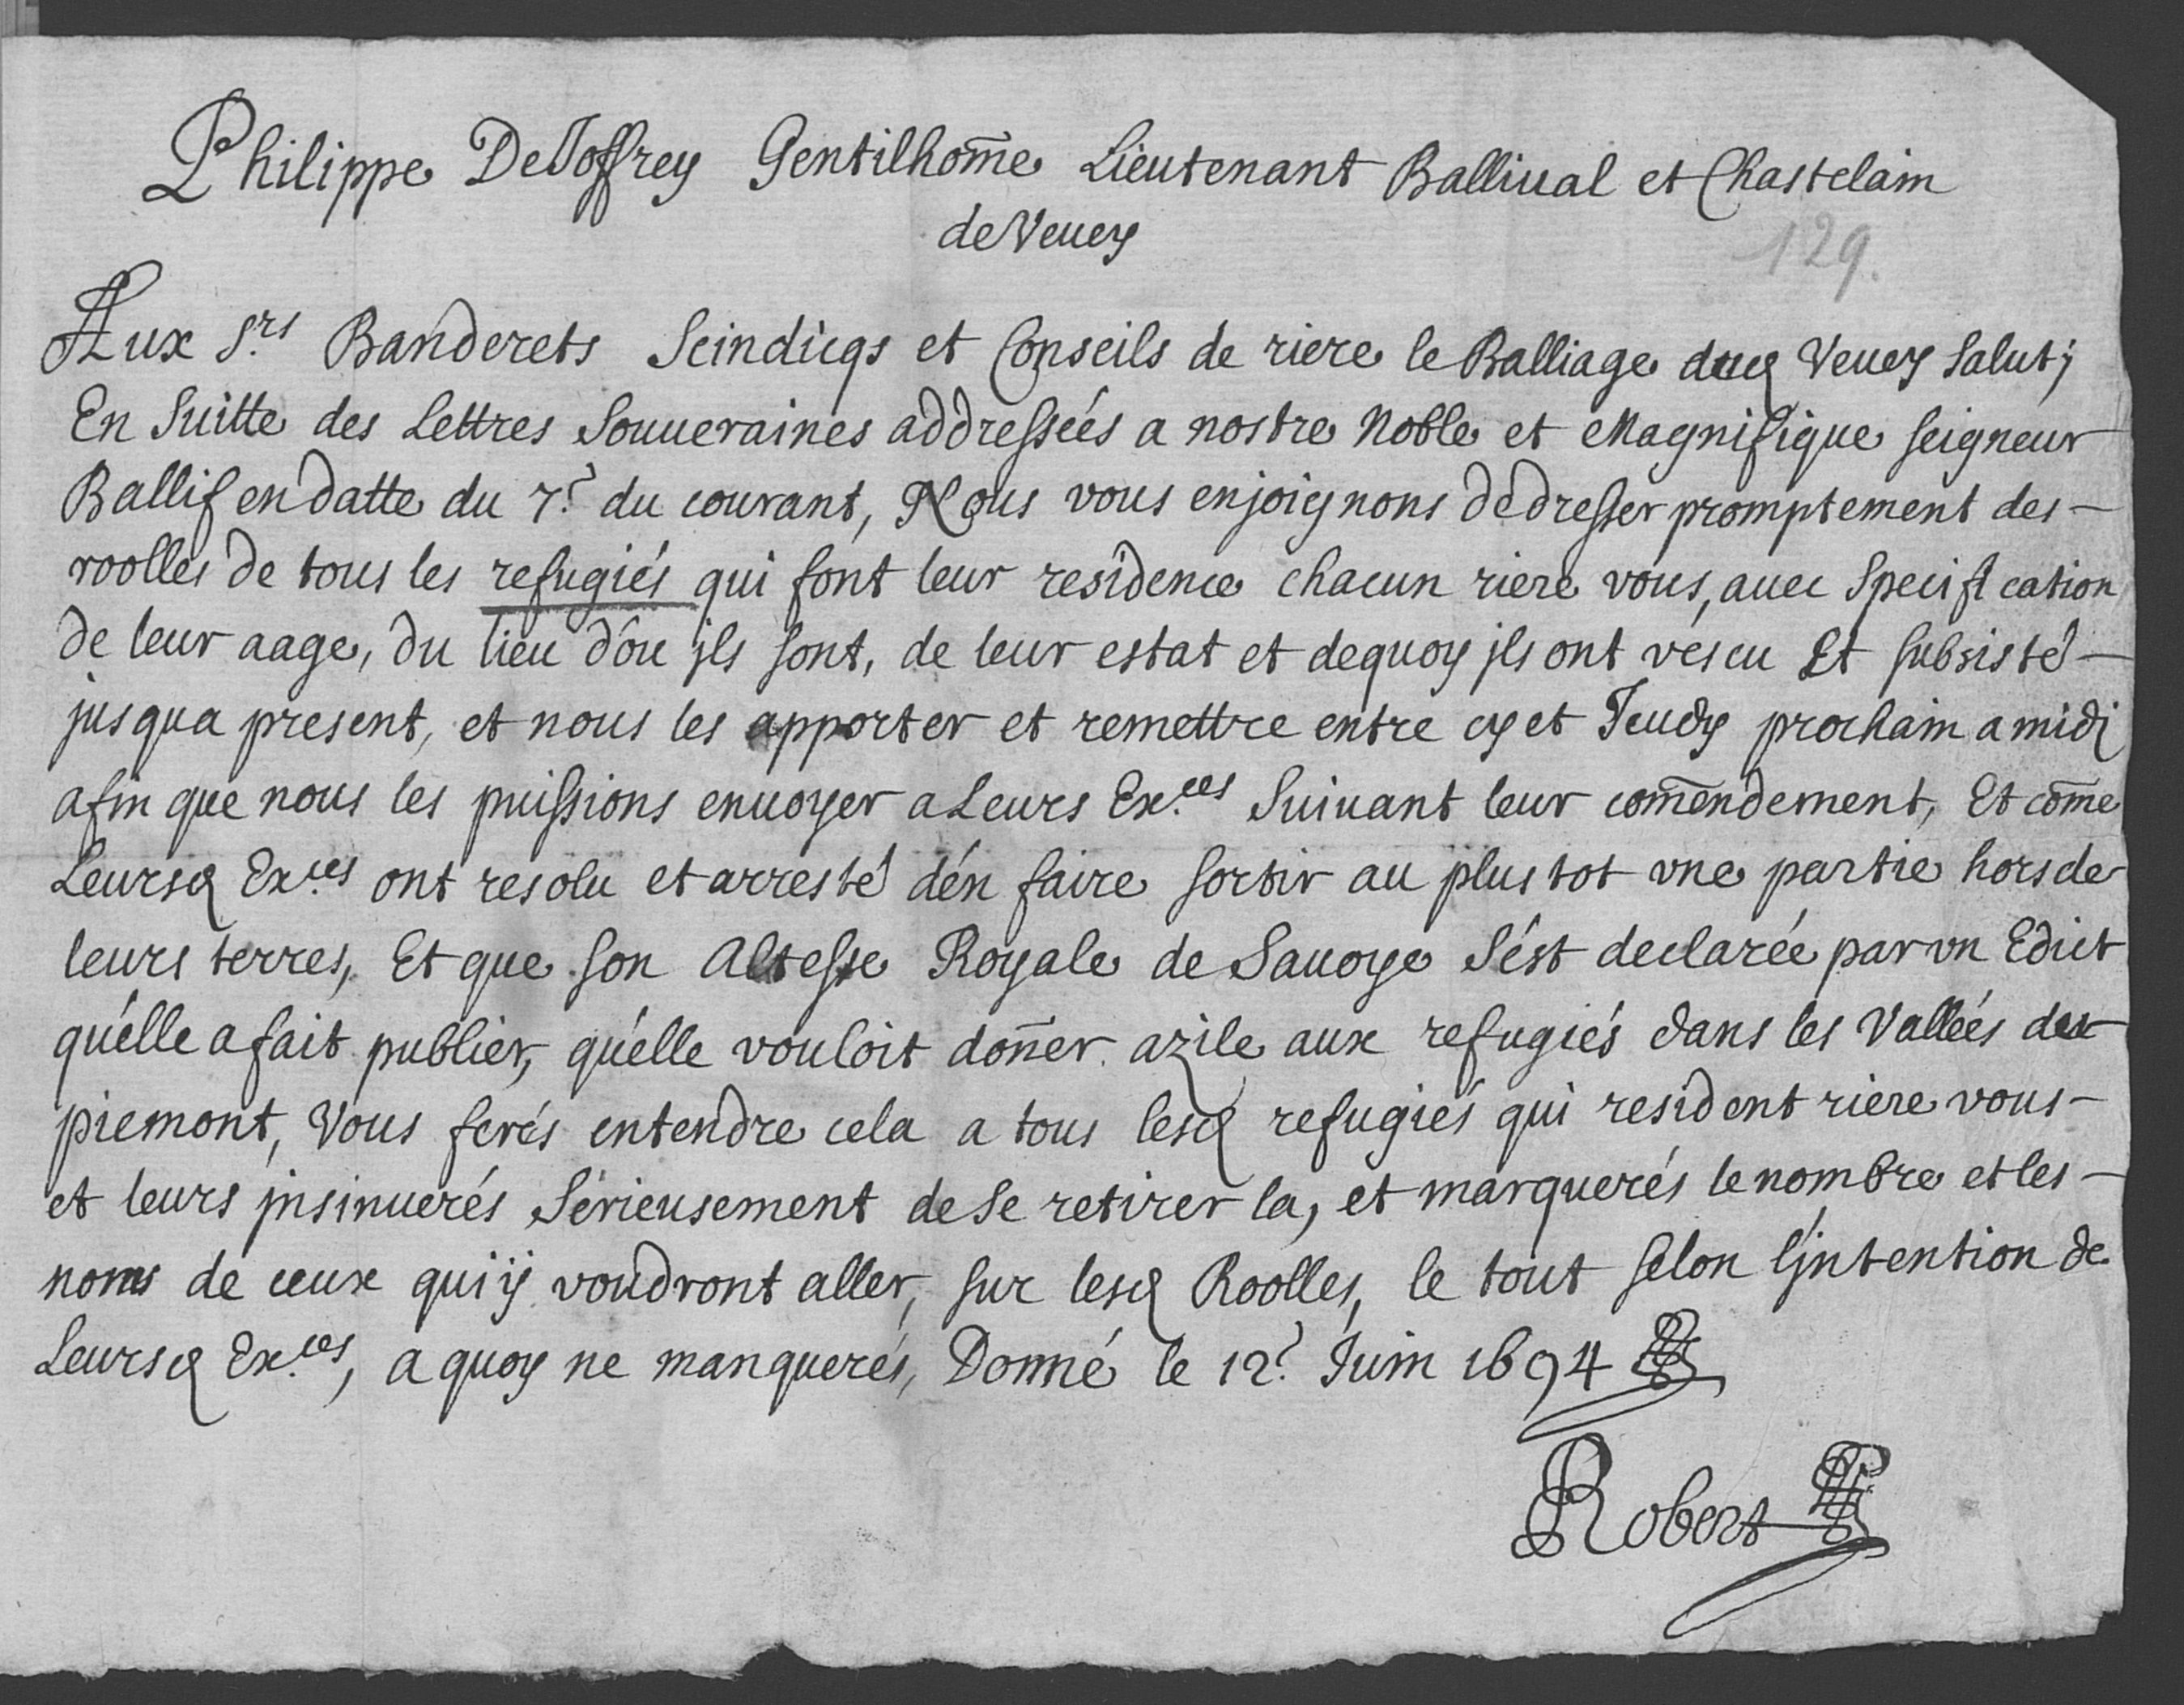 Philippe DeJoffrey Gentilhom̄e Lieutenant Balliual et Chastelain
de Veuey
129.
Aux Srs Banderets Scindicqs et Conseils de riere le Balliage dud Veuey Salut;
En Suitte des Lettres Souueraines addressées a nostre Noble et Magnifique seigneur
Ballif en datte du 7e du courant, Nous vous enjoignons de dresser promptement des -
roolles de tous les refugiés qui font leur residence chacun riere vous, auec Specification
de leur aage, du lieu d'ou jls sont, de leur estat et dequoy jls ont vescu Et subsisté -
jusqua present, et nous les apporter et remettre entre cy et Jeudy prochain a midi
afin que nous les puissions enuoyer a Leurs Ex.ces Suiuant leur com̄endement, Et com̄e
Leursd Ex.ces ont resolu et arresté d'en faire sortir au plustot vne partie hors de
leurs terres, Et que son Altesse Royale de Sauoye S'est declarée par vn Edict
qu'elle a fait publier, qu'elle vouloit don̄er azile aux refugiés dans les Vallées de
piemont, Vous ferés entendre cela a tous lesd refugiés qui resident riere vous -
et leurs jnsinuerés Sérieusement de se retirer la, et marquerés le nombre et les -
noms de ceux qui ÿ voudront aller, sur lesd Roolles, le tout selon l'jntention de
Leursd Ex.ces, a quoy ne manquerés, Donné le 12e Juin 1694
Robert